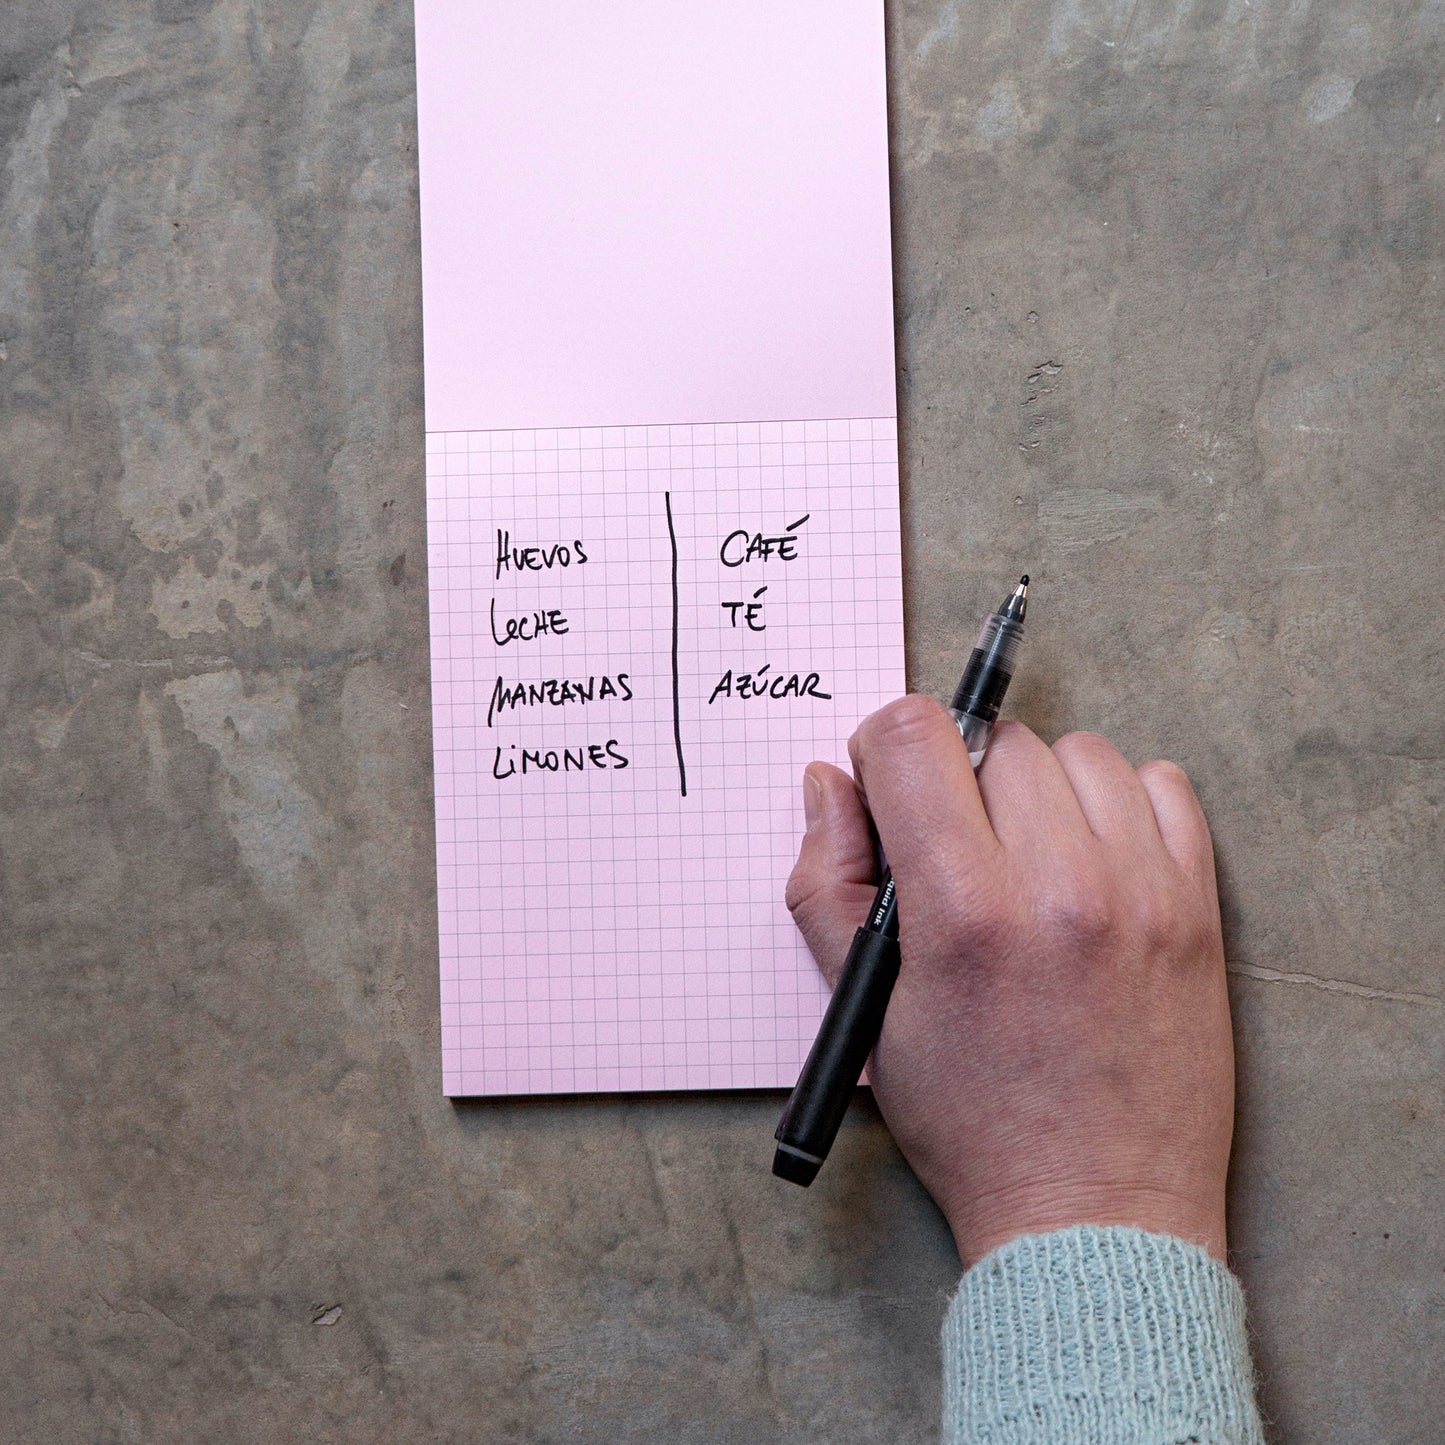 HUEVOS
LECHE
MANZANAS
LiMONES
CAFÉ
TÉ
AZÚCAR
quid Ink